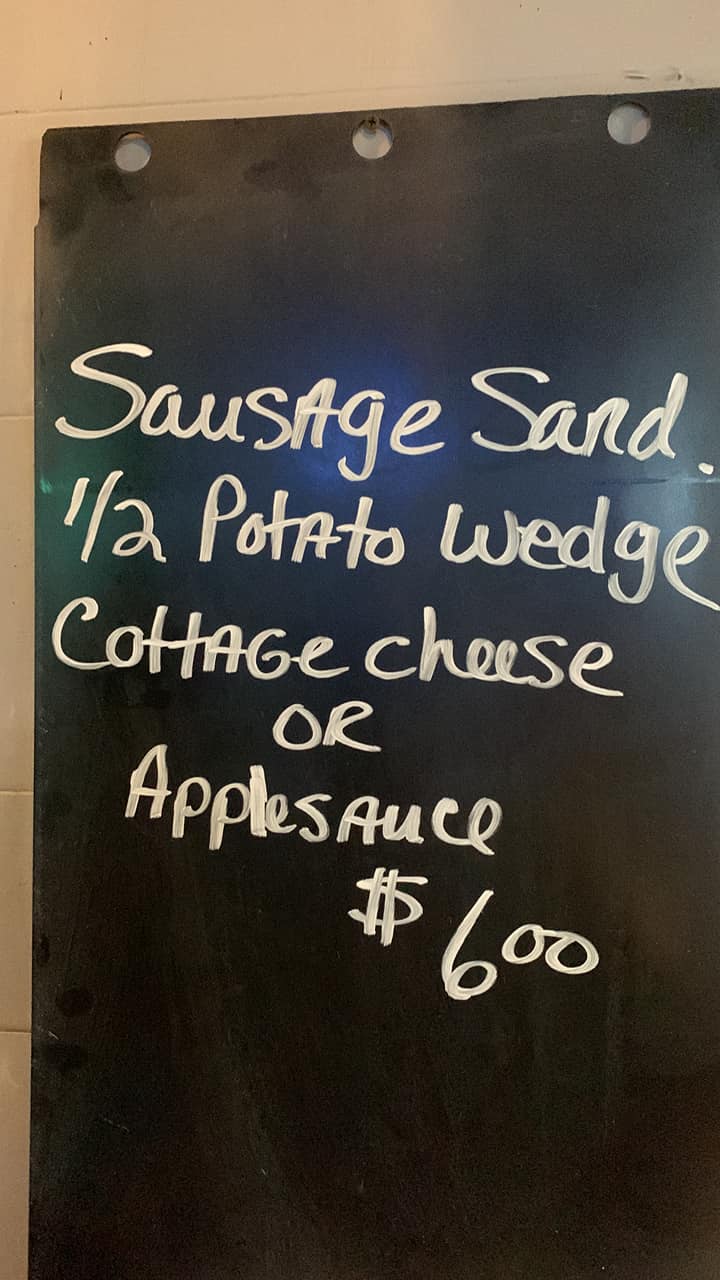 Sausage Sand.
1/2 Potato wedge
Cottage cheese
OR
Applesauce
$6.00